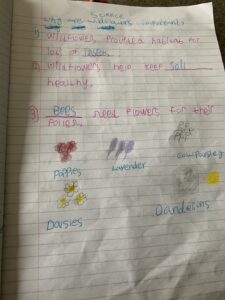 Science
Why are wildflowers important
1) Wildflowers provide a habitat for
lots of
2) Wildflowers help keep Soil
healthy.
3) Bees need flowers for their
Poppies
Lavender
Cow Parsley
Daisies
Dandelions